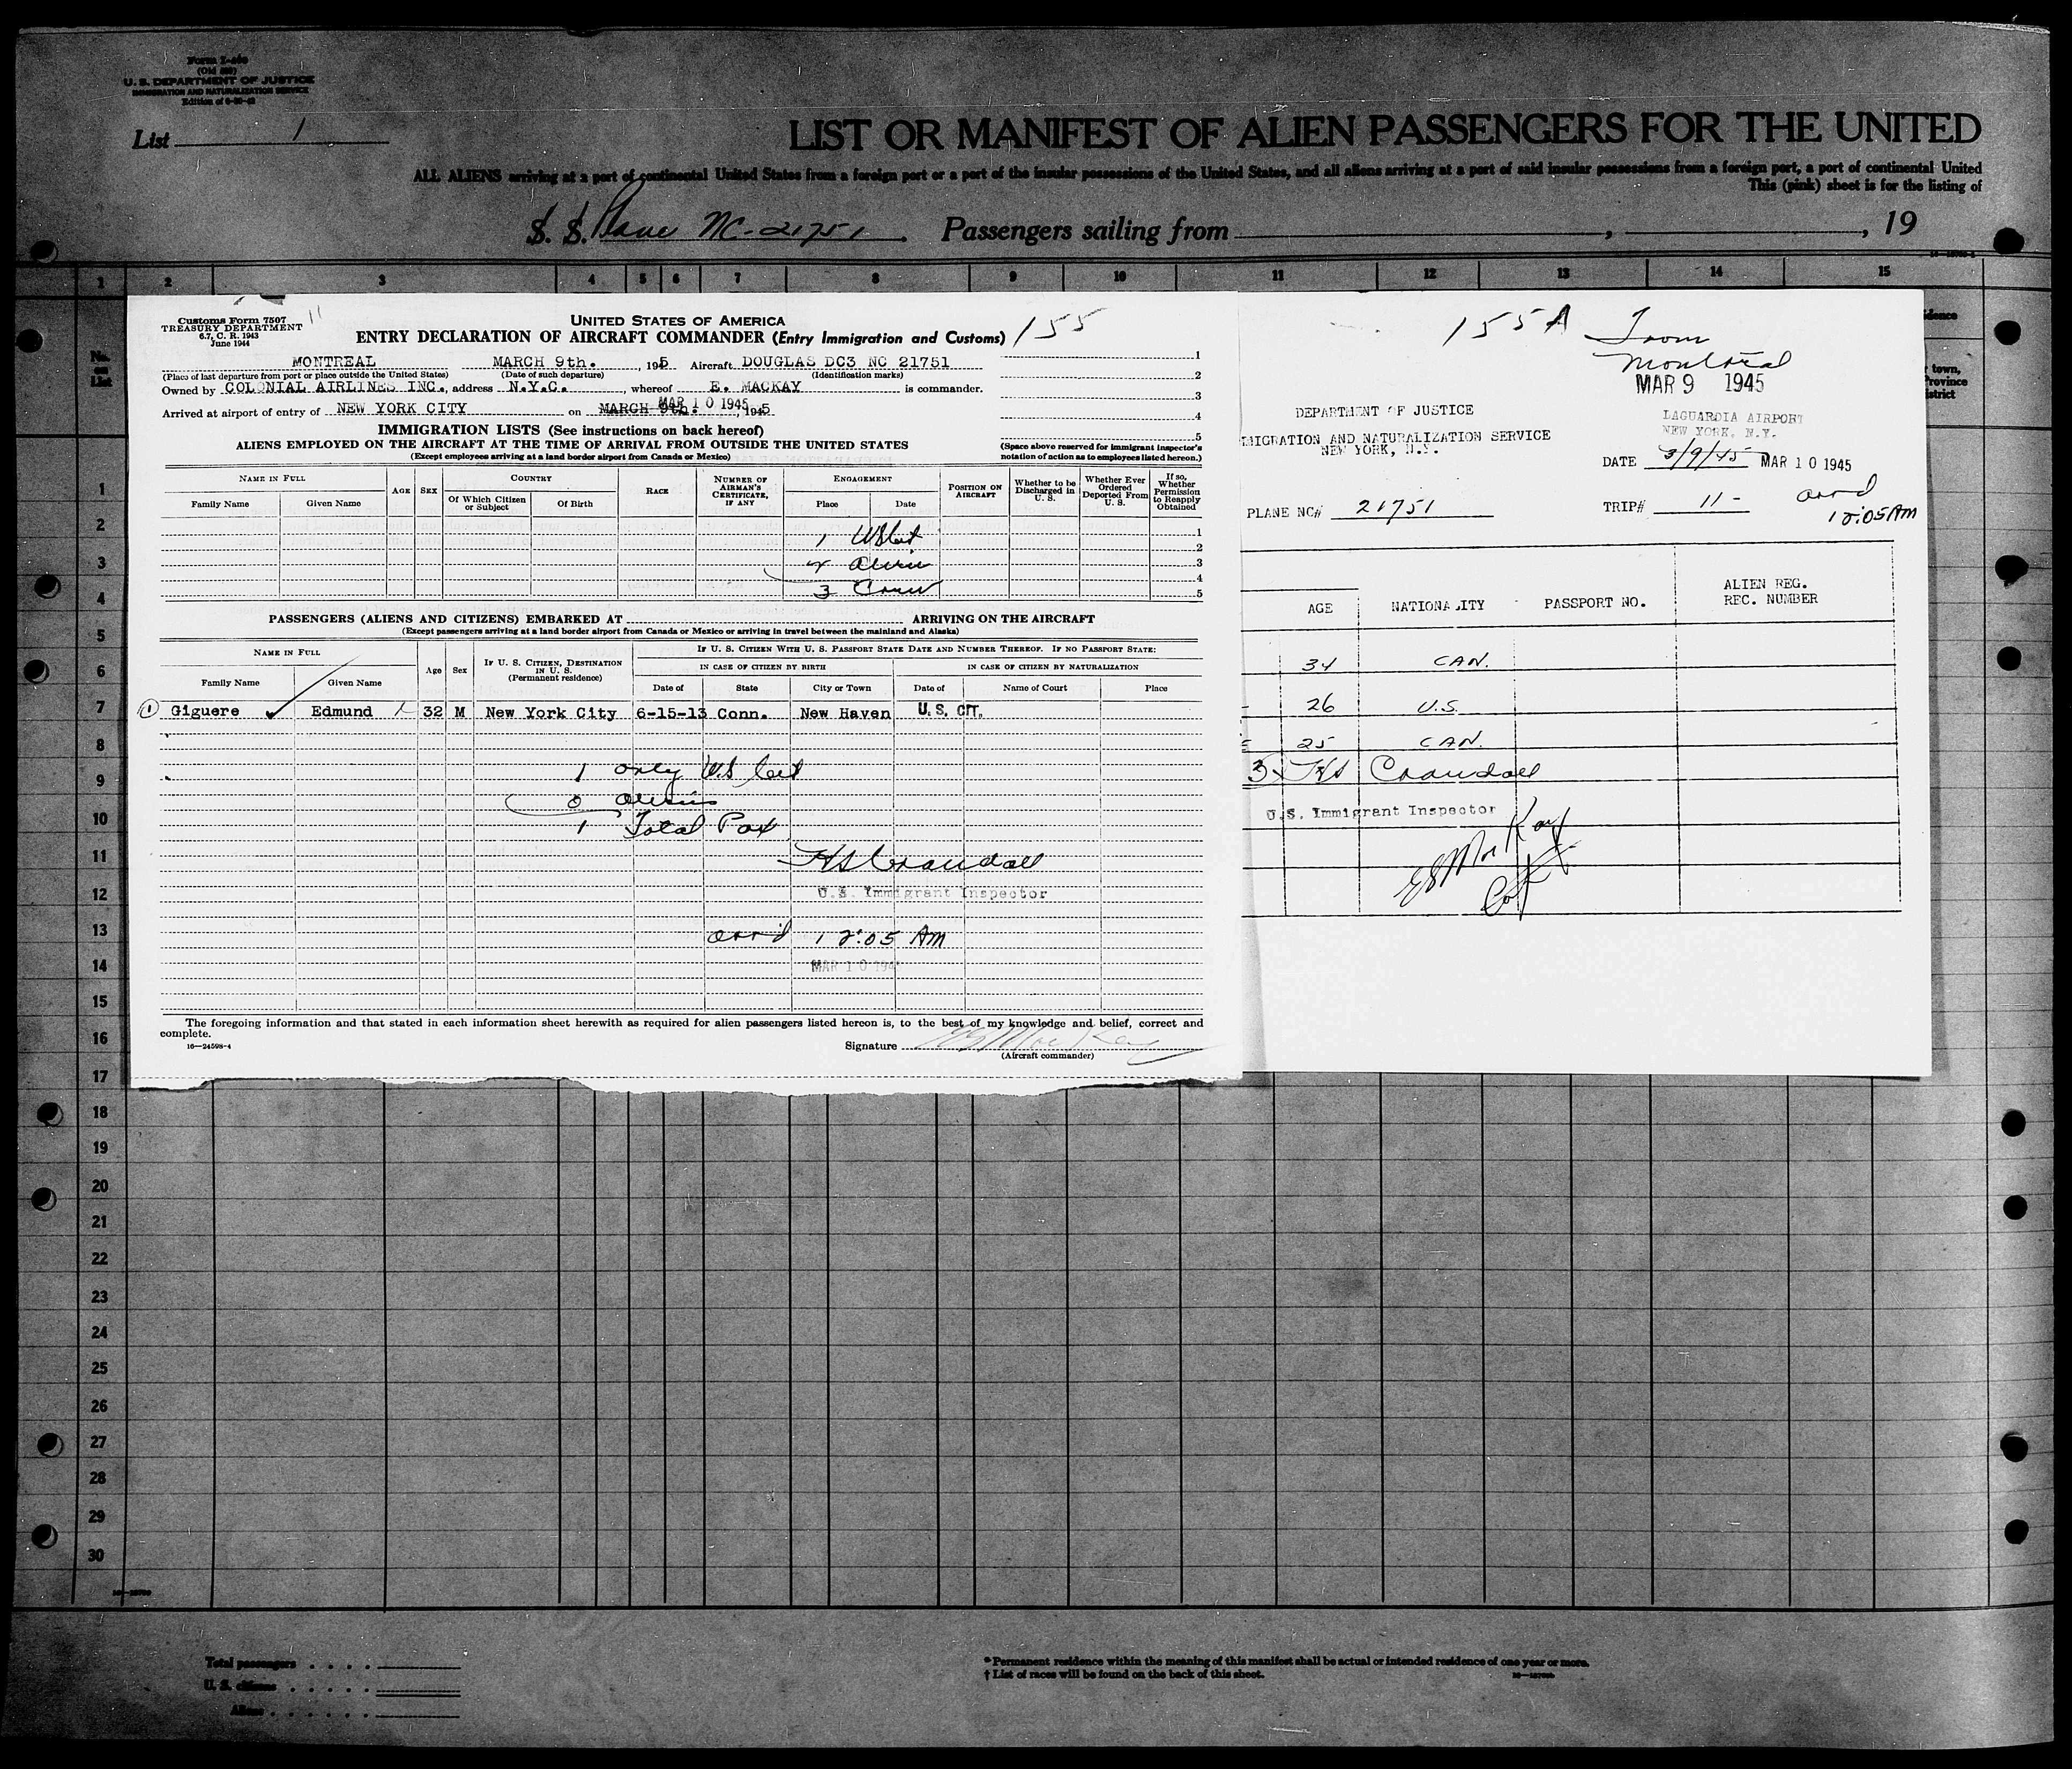 Form I-466
(Old 500)
U. S. DEPARTMENT OF JUSTICE
IMMIGRATION AND NATURALIZATION SERVICE
List 1
LIST OR MANIFEST OF ALIEN PASSENGERS FOR THE UNITED
ALL ALIENS arriving at a port of continental United States from a foreign port or a port of the insular possessions of the United States, and all aliens arriving at a port of said insular possessions from a foreign port, a port of continental United
This (pink) sheet is for the listing of
S. S. Plane NC-21751. Passengers sailing from , , 19
1 2 3 4 5 6 7 8 9 10 11 12 13 14 15
No. on List
Customs Form 7507
TREASURY DEPARTMENT
6.7, C. R. 1943
June 1944
11
UNITED STATES OF AMERICA
ENTRY DECLARATION OF AIRCRAFT COMMANDER (Entry Immigration and Customs) 155
MONTREAL MARCH 9th. , 1945 Aircraft DOUGLAS DC3 NC 21751
(Place of last departure from port or place outside the United States) (Date of such departure) (Identification marks)
Owned by COLONIAL AIRLINES INC., address N.Y.C. , whereof E. MACKAY is commander.
Arrived at airport of entry of NEW YORK CITY on MARCH 9th. MAR 10 1945 , 1945
1
2
3
4
5
(Space above reserved for immigrant inspector's notation of action as to employees listed hereon.)
IMMIGRATION LISTS (See instructions on back hereof)
ALIENS EMPLOYED ON THE AIRCRAFT AT THE TIME OF ARRIVAL FROM OUTSIDE THE UNITED STATES
(Except employees arriving at a land border airport from Canada or Mexico)
NAME IN FULL AGE SEX COUNTRY RACE NUMBER OF AIRMAN'S CERTIFICATE, IF ANY ENGAGEMENT POSITION ON AIRCRAFT Whether to be Discharged in U. S. Whether Ever Ordered Deported From U. S. If so, Whether Permission to Reapply Obtained
Family Name Given Name Of Which Citizen or Subject Of Birth Place Date
1 US Cit 1
2
2 Alien 3
4
3 Crew 5
PASSENGERS (ALIENS AND CITIZENS) EMBARKED AT ARRIVING ON THE AIRCRAFT
(Except passengers arriving at a land border airport from Canada or Mexico or arriving in travel between the mainland and Alaska)
NAME IN FULL Age Sex IF U. S. CITIZEN, DESTINATION IN U. S. (Permanent residence) IF U. S. CITIZEN WITH U. S. PASSPORT STATE DATE AND NUMBER THEREOF. IF NO PASSPORT STATE:
IN CASE OF CITIZEN BY BIRTH IN CASE OF CITIZEN BY NATURALIZATION
Family Name Given Name Date of State City or Town Date of Name of Court Place
1 Giguere Edmund 32 M New York City 6-15-13 Conn. New Haven U.S. CIT.
1 only U.S Cit
0 Aliens
1 Total Pax
HS Crandall
U.S. Immigrant Inspector
arr'd 12:05 AM
MAR 10 1945
The foregoing information and that stated in each information sheet herewith as required for alien passengers listed hereon is, to the best of my knowledge and belief, correct and
complete.
16—24598-4
Signature ES MacKay
(Aircraft commander)
155A From
Montreal
MAR 9 1945
DEPARTMENT OF JUSTICE
LAGUARDIA AIRPORT
NEW YORK, N.Y.
MIGRATION AND NATURALIZATION SERVICE
NEW YORK, N.Y.
DATE 3/9/45 MAR 10 1945
PLANE NC# 21751 TRIP# 11- arr'd
12:05 AM
AGE NATIONALITY PASSPORT NO. ALIEN REG. REC. NUMBER
34 CAN.
26 U.S.
25 CAN.
3x HS Crandall
U.S. Immigrant Inspector
ES MacKay
Capt
1
2
3
4
5
6
7
8
9
10
11
12
13
14
15
16
17
18
19
20
21
22
23
24
25
26
27
28
29
30
Total passengers
U. S. citizens
Aliens
* Permanent residence within the meaning of this manifest shall be actual or intended residence of one year or more.
† List of races will be found on the back of this sheet.